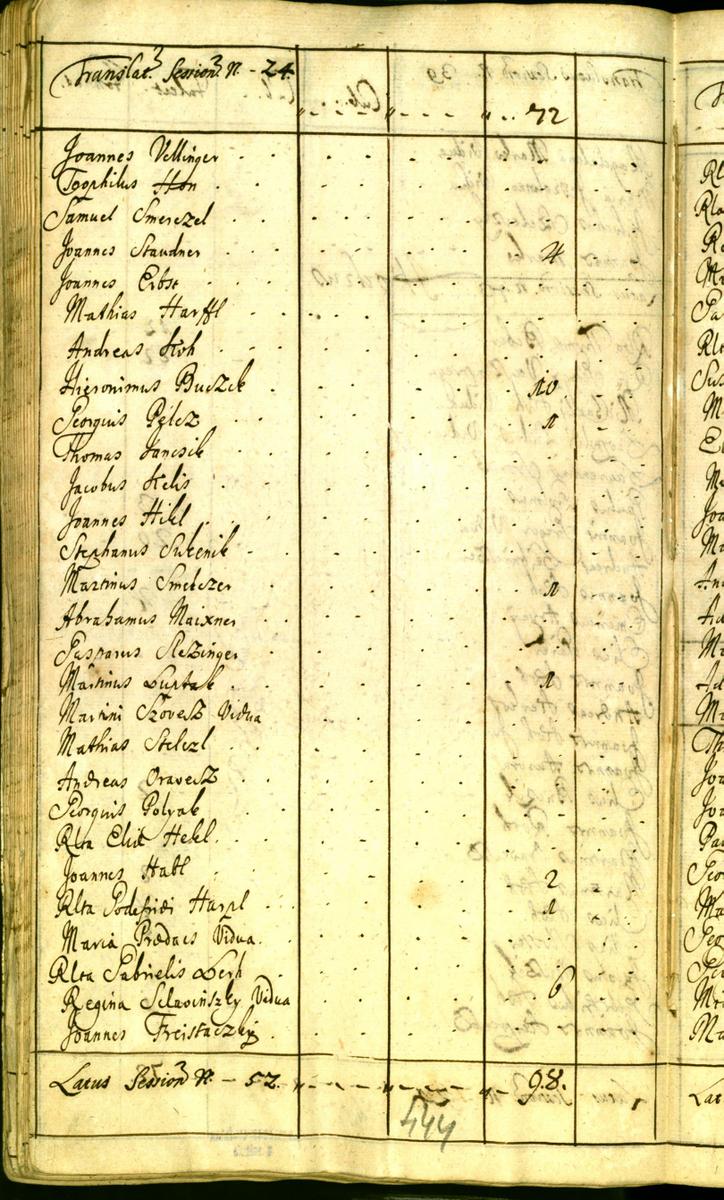 Translat. Session. N. - 24. 72
Joannes Vellinger
Teophilus Hon
Samuel Smerczel
Joannes Staudner 4
Joannes Erbst
Mathias Harffl
Andreas Koh
Hieronimus Buczek 10.
Georgius Pelcz 1
Thomas Jancsik
Jacobus Kelis
Joannes Hikl
Stephanus Sukenik
Martinus Smelczer 1
Abrahamus Maixner
Gasparus Slezinger
Martinus Luptak 1
Martini Szövesz Vidua
Mathias Stelczl
Andreas Oravecz
Georgius Polyak
Rlta Eliæ Hekl
Joannes Habl 2
Rlta Godefridi Harpl 1
Maria Prædacs Vidua.
Rlta Gabrielis Lerh
Regina Slavinszky Vidua 6
Joannes Freistaczky
Latus Session. N. - 52. 98.
544